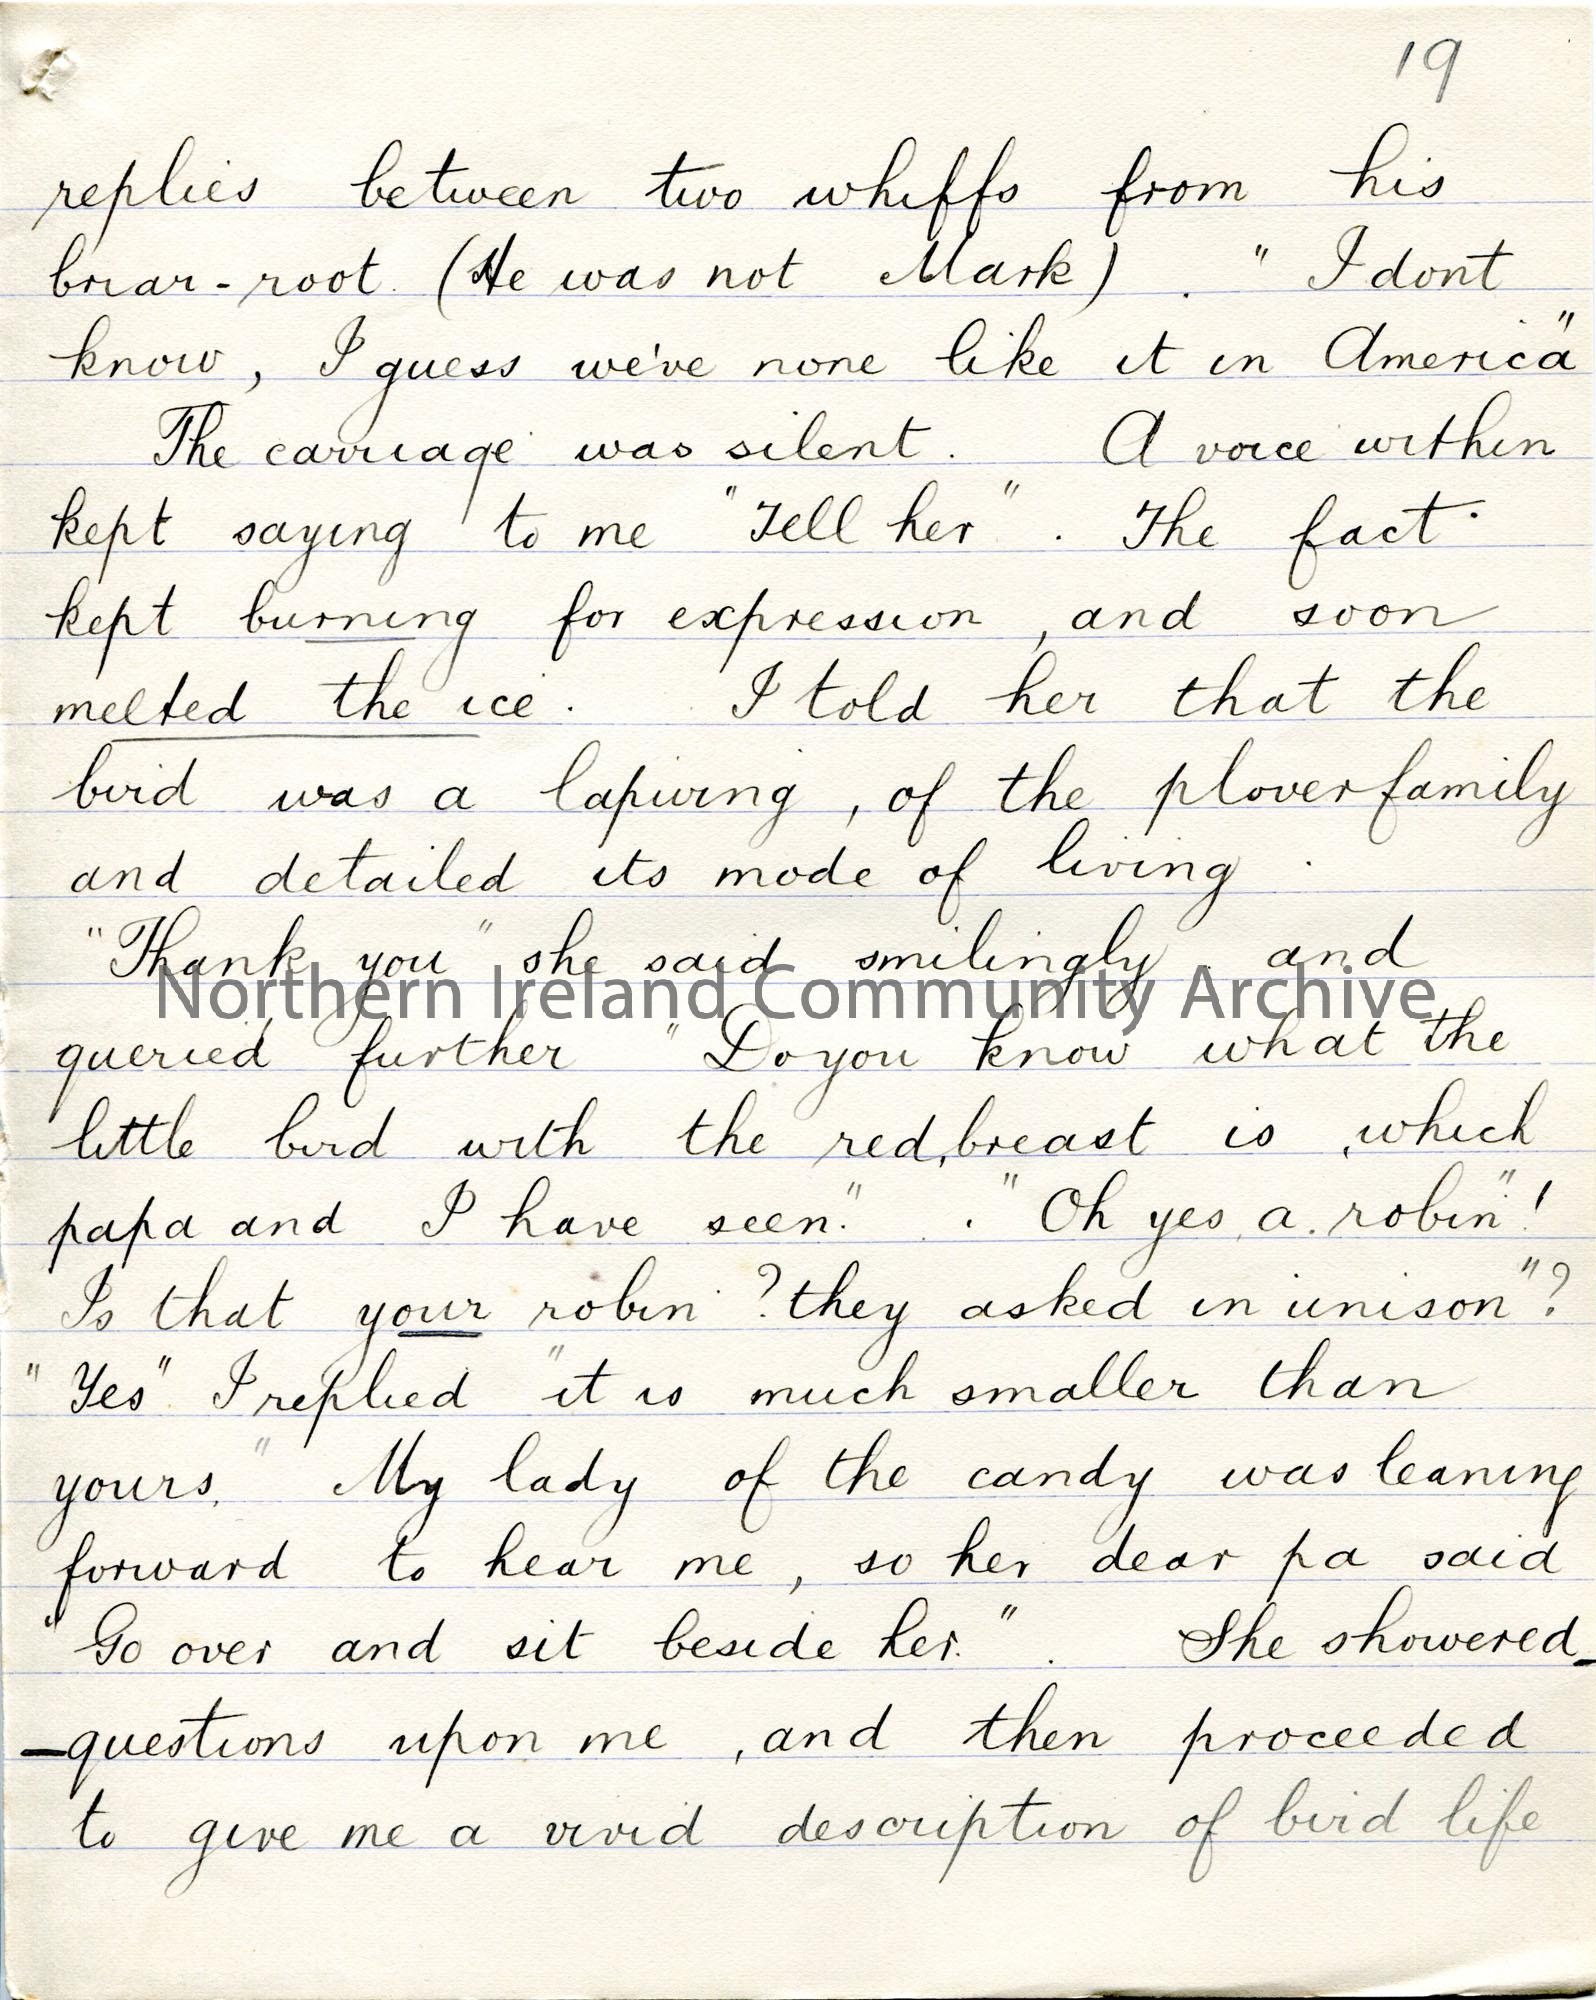 19
replies between two whiffs from his
briar-root. (He was not Mark). "I dont
know, I guess we've none like it in America"
The carriage was silent. A voice within
kept saying to me "Tell her". The fact
kept burning for expression, and soon
melted the ice. I told her that the
bird was a lapwing, of the plover family
and detailed its mode of living.
"Thank you" she said smilingly and
Northern Ireland Community Archive
queried further "Do you know what the
little bird with the red, breast is, which
papa and I have seen." . "Oh yes, a robin"!
Is that your robin? they asked in unison"?
"Yes" I replied "it is much smaller than
yours." My lady of the candy was leaning
forward to hear me, so her dear pa said
"Go over and sit beside her.". She showered-
-questions upon me, and then proceeded
to give me a vivid description of bird life